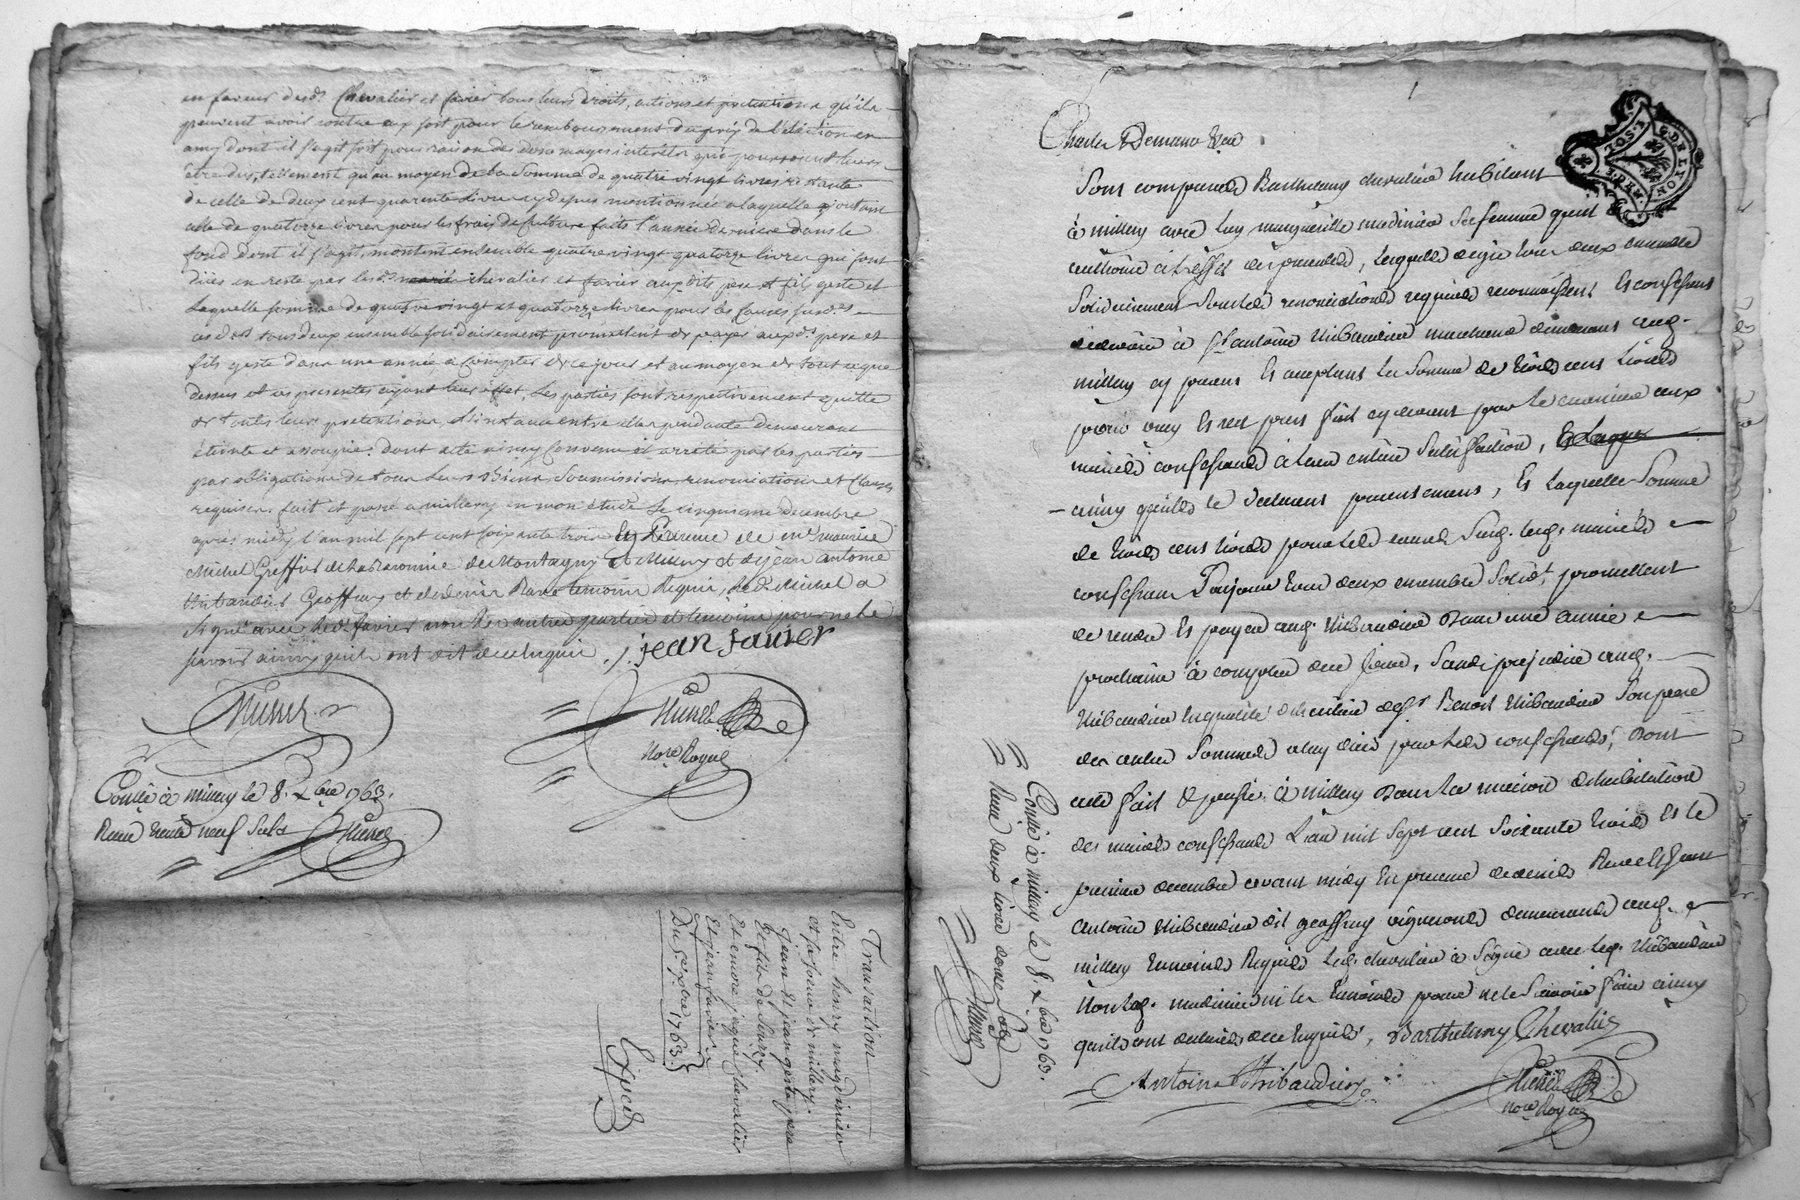 en faveur desd. Chevalier et favier tous leurs droits, actions et pretentions qu'ils
peuvent avoir contre eux soit pour le remboursement du prix de l'élection en
amy dont il s'agit soit pour raison des domages interêts qui pourroient leurs
être dus, tellement qu'au moyen de la somme de quatre vingt livres restante
de celle de deux cent quarente livres cy dessus mentionnée a laquelle ajoutant
celle de quatorze livres pour les frais de culture faits l'année derniere dans le
fond dont il s'agit, montent ensemble quatre vingt quatorze livres qui sont
dües en reste par lesd. chevalier et favier auxdits pere et fils geste et
laquelle somme de quatre vingt et quatorze livres pour les causes susd.es
tous deux ensemble solidairement promettent de payer auxd. pere et
fils geste dans une année a compter de ce jour et au moyen de tout ce que
dessus et ces presentes ayant leur effet, les parties sont respectivement quitte
de touts leurs pretentions, et l'instance entre elles pendante demeurant
éteinte et assoupie. dont acte ainsy convenu et arreté par les parties
par obligations de tous leurs biens, soumissions renonciations et clauses
requises. fait et passé a millery en mon étude le cinquieme decembre
apres midy l'an mil sept cent soixante trois En Presence de m.e maurice
Michel Greffier de la Baronnie de Montagny et Millery et de jean antoine
thibaudier Geoffray et de denis Rave temoins Requis, led. Michel a
signé avec led. favier non les autres parties et temoins pour ne le
sçavoir ainsy qu'ils ont dit de ce enquis . jean favier
Not.re Royal
Conllé à millery le 8. Xbre 1763.
Recu trente neuf sols
Transaction
Entre henry madinier
et sa femme de millery.
jean et jean geste pere
et fils de
Et encore jaque chevalier
Et jean favier
Du 5 Xbre 1763.
Exped
G. D. LYON
Sont comparus Barthelemy chevalier habitant
à millery avec luy marguerite madinier sa femme quil
authorise à l'effet des presentes, lesquels de gré tous deux ensemble
solidairement sous les renonciations requises reconnoissent Et confessent
devoir à s.r antoine thibaudier marchand demeurant aud.
millery cy present Et acceptant la somme de trois cens livres
pour vray Et reel prest fait cy devant par le creancier aux
mariés confessants à leur entiere satisfaction,
ainsy qu'ils le declarent presentement, Et laquelle somme
de trois cens livres pour les causes susd. lesd. mariés
confessants toujours tous deux ensemble solid.t promettent
de rendre Et payer aud. thibaudier dans une année
prochaine à compter de ce jour, sans prejudice aud.
thibaudier en qualité d'heritier de s.r Benoit thibaudier son pere
des autres sommes à luy dües par lesd. confessants, Dont
acte fait & passé à millery dans la maison d'habitation
des mariés confessants L'an mil sept cent soixante trois Et le
premier decembre avant midy En presence de denis Rave Et jean
antoine thibaudier dit geoffray vignerons demeurants aud.
millery temoins Requis led. chevalier a signé avec led. thibaudier
non lad. madinier ni les temoins pour ne le scavoir faire ainsy
qu'ils ont declaré de ce enquis, Barthelemy Chevalie
Antoine Thibaudier
Not.re Royal
Conllé à millery le 8. Xbre 1763.
Recu deux livres douze sols